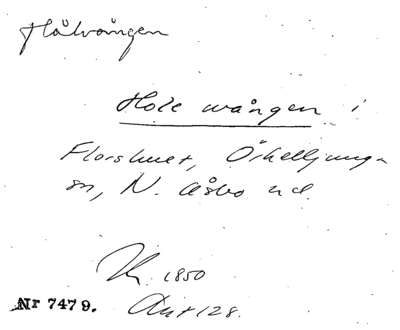 Hålvången
Hole wången i
Florshult, Örkelljunga
sn, N. Åsbo hd.
K. 1850
Akt 128.
Nr 7479.